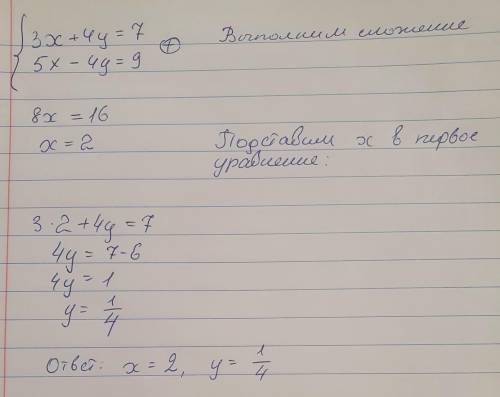 3x + 4y = 7 (+) Выполним сложение
5x - 4y = 9
8x = 16
x = 2 Подставим x в первое
уравнение:
3 · 2 + 4y = 7
4y = 7 - 6
4y = 1
y = 1/4
Ответ: x = 2, y = 1/4